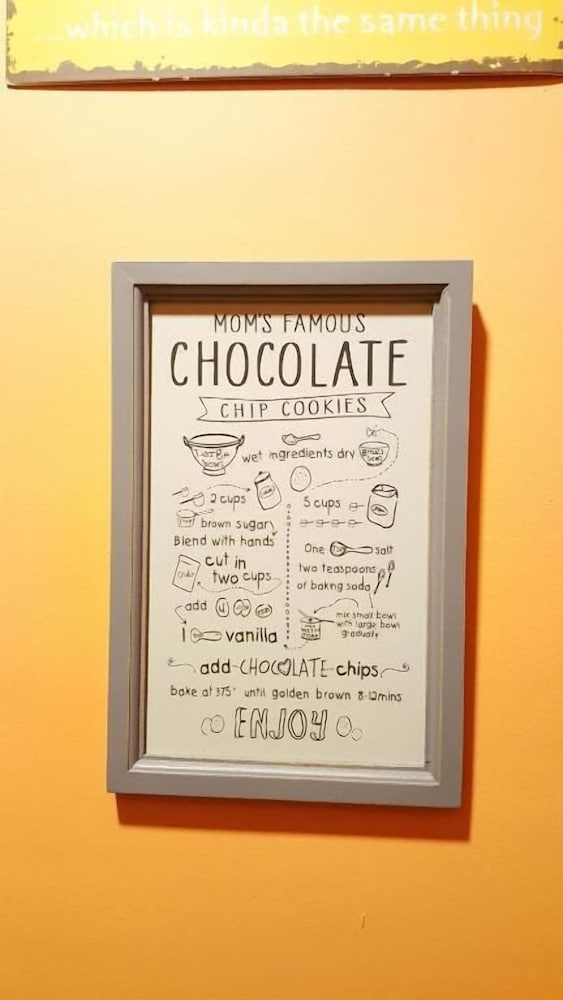 ...which is kinda the same thing
MOM'S FAMOUS
CHOCOLATE
CHIP COOKIES
LARGE BOWL
wet ingredients dry
SMALL BOWL
2 cups
brown sugar
Blend with hands
cut in
two cups
add 4
1 vanilla
5 cups
One salt
two teaspoons
of baking soda
mix small bowl
with large bowl
gradually
add CHOCOLATE chips
bake at 375° until golden brown 8-12mins
ENJOY